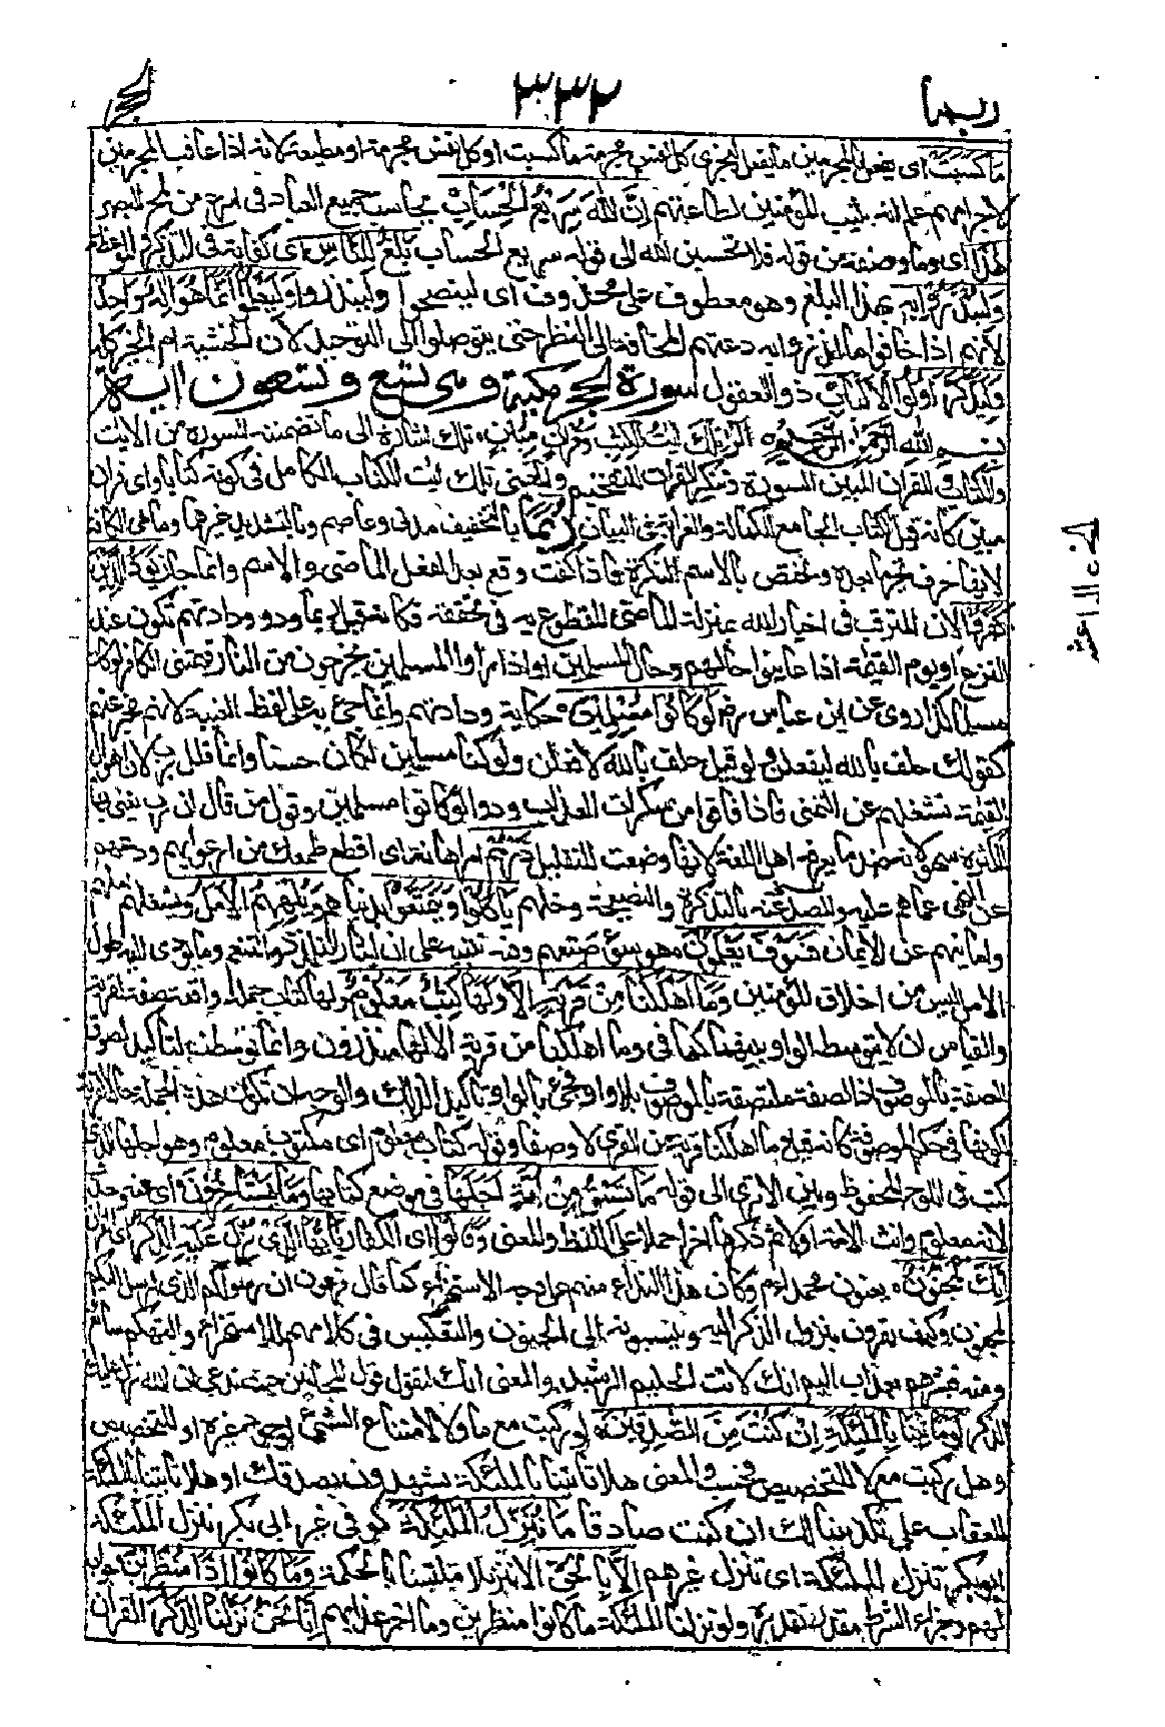 ربما ٣٣٢ الحجر
ما كسبت اى يفعل بالمجرمين ما يفعل ليجزى كل نفس مجرمة ما كسبت او كل نفس مجرمة او مطيعة لانه اذا عاقب المجرمين
لاجرامهم علم انه يثيب المؤمنين لطاعتهم ان الله سريع الحساب يحاسب جميع العباد فى اسرع من لمح البصر
هذا اى ما وصفه من قوله فلا تحسبن الله الى قوله سريع الحساب بلغ للناس اى كفاية فى التذكير والموعظة
ولينذروا به بهذا البلغ وهو معطوف على محذوف اى لينصحوا ولينذروا وليعلموا انما هو اله واحد
لانهم اذا خافوا ما انذروا به دعتهم المخافة الى النظر حتى يتوصلوا الى التوحيد لان الخشية ام الخير كله
وليذكر اولوا الالباب ذوو العقول سورة الحجر مكية وهى تسع وتسعون اية
بسم الله الرحمن الرحيم الر تلك ايت الكتب وقران مبين تلك اشارة الى ما تضمنته السورة من الايت
والكتاب والقران المبين السورة وتنكير القران للتفخيم والمعنى تلك ايت الكتاب الكامل فى كونه كتابا واى قران
مبين كانه قيل الكتاب الجامع للكمال والغرابة فى البيان ربما بالتخفيف مدنى وعاصم وبالتشديد غيرهما وما هى الكافة
لانها حرف يجر ما بعده ويختص بالاسم النكرة فاذا كفت وقع بعدها الفعل الماضى والاسم وانما جاز يود الذين
كفروا لان المترقب فى اخبار الله بمنزلة الماضى المقطوع به فى تحققه فكانه قيل ربما ود وودادتهم تكون عند
النزع او يوم القيمة اذا عاينوا حالهم وحال المسلمين او اذا راوا المسلمين يخرجون من النار فيتمنى الكافر لو كان
مسلما كذا روى عن ابن عباس رض لو كانوا مسلمين حكاية ودادتهم وانما جئ بها على لفظ الغيبة لانهم مخبر عنهم
كقولك حلف بالله ليفعلن ولو قيل حلف بالله لافعلن ولو كنا مسلمين لكان حسنا وانما قلل برب لان اهوال
القيمة تشغلهم عن التمنى فاذا افاقوا من سكرات العذاب ودوا لو كانوا مسلمين وقول من قال ان رب يعنى بها
الكثرة سهو لانه ضد ما يعرفه اهل اللغة لانها وضعت للتقليل ذرهم امر اهانة اى اقطع طمعك من ارعوائهم ودعهم
عن النهى عما هم عليه والصد عنه بالتذكرة والنصيحة وخلهم ياكلوا ويتمتعوا بدنياهم ويلههم الامل ويشغلهم
وامانيهم عن الايمان فسوف يعلمون سوء صنيعهم وفيه تنبيه على ان ايثار التلذذ والتنعم وما يؤدى اليه طول
الامل ليس من اخلاق المؤمنين وما اهلكنا من قرية الا ولها كتب معلوم ولها كتاب جملة واقعة صفة لقرية
والقياس ان لا يتوسط الواو بينهما كما فى وما اهلكنا من قرية الا لها منذرون وانما توسطت لتاكيد لصوق
الصفة بالموصوف اذ الصفة ملتصقة بالموصوف بلا واو فجئ بالواو تاكيدا لذلك والوجه ان تكون هذه الجملة حالا لقرية
لكونها فى حكم الموصوفة كانه قيل ما اهلكنا قرية من القرى لا وصفا وقوله كتاب معلوم اى مكتوب معلوم وهو اجلها الذى
كتب فى اللوح المحفوظ وبين الا ترى الى قوله ما تسبق من امة اجلها فى موضع كتابها وما يستاخرون اى عنه وحذف
لانه معلوم وانث الامة اولا ثم ذكرها اخرا حملا على اللفظ والمعنى وقالوا اى الكفار يايها الذى نزل عليه الذكر اى القران
انك لمجنون يعنون محمدا عم وكان هذا النداء منهم على وجه الاستهزاء كما قال فرعون ان رسولكم الذى ارسل اليكم
لمجنون وكيف يقرون بنزول الذكر اليه وينسبونه الى الجنون والتعكيس فى كلامهم للاستهزاء والتهكم سائغ
ومنه فبشرهم بعذاب اليم انك لانت الحليم الرشيد والمعنى انك لتقول قول المجانين حيث تدعى ان الله نزل عليك
الذكر لو ما تاتينا بالملئكة ان كنت من الصدقين لو ركبت مع ما ولا لامتناع الشئ لوجود غيره او للتحضيض
وهل ركبت مع لا للتحضيض فحسب والمعنى هلا تاتينا بالملئكة يشهدون بصدقك او هلا تاتينا بالملئكة
للعقاب على تكذيبنا لك ان كنت صادقا ما ننزل الملئكة كوفى غير ابى بكر تنزل الملئكة
ابوبكر تنزل الملئكة اى تتنزل غيرهم الا بالحق الا تنزيلا ملتبسا بالحكمة وما كانوا اذا منظرين جواب
لهم وجزاء الشرط مقدر تقديره ولو نزلنا الملئكة ما كانوا منظرين وما اخر عذابهم انا نحن نزلنا الذكر القران